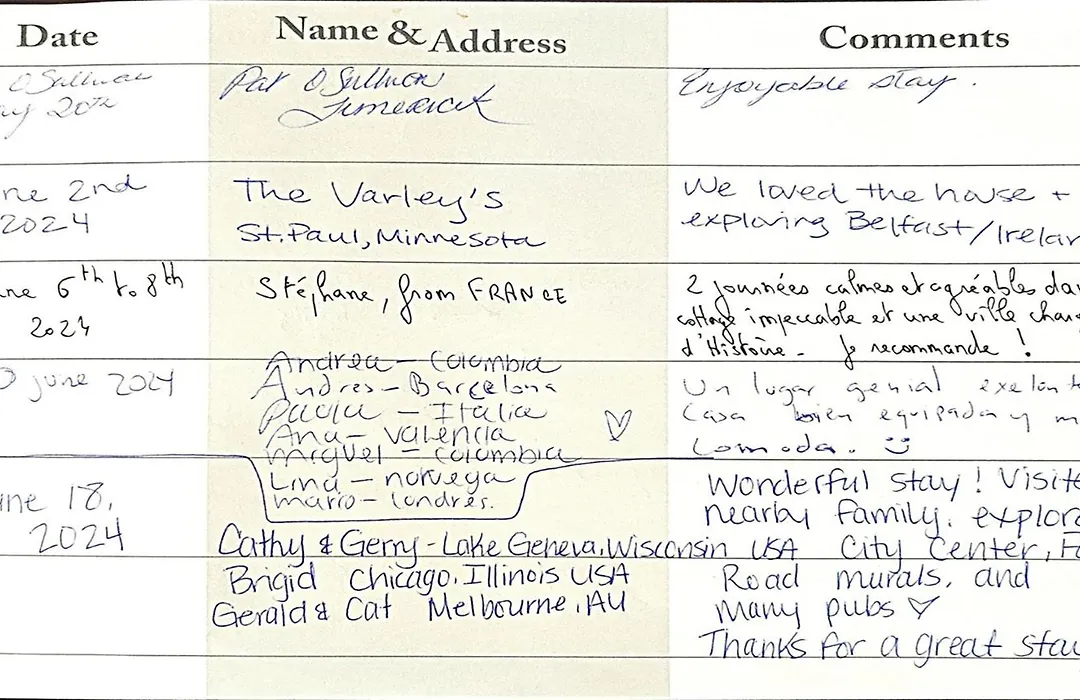 Date Name & Address Comments
O Sullivan Pat O Sullivan Enjoyable stay.
20th Limerick
ne 2nd The Varley's We loved the house +
2024 St. Paul, Minnesota exploring Belfast/Irelan
ne 6th to 8th Stéphane, from FRANCE 2 journées calmes et agréables da
2024 cottage impeccable et une ville char
d'Histoire - Je recommande !
june 2024 Andrea - Colombia
Andres - Barcelona Un lugar genial exelent
Paola - Italia Casa bien equipada y m
Ana - Valencia Comoda.
miguel - colombia
Lina - noruega
mario - londres.
ne 18, Wonderful stay! Visite
2024 nearby family, explor
Cathy & Gerry - Lake Geneva, Wisconsin USA City Center, Fa
Brigid Chicago, Illinois USA Road murals, and
Gerald & Cat Melbourne, AU many pubs
Thanks for a great stay